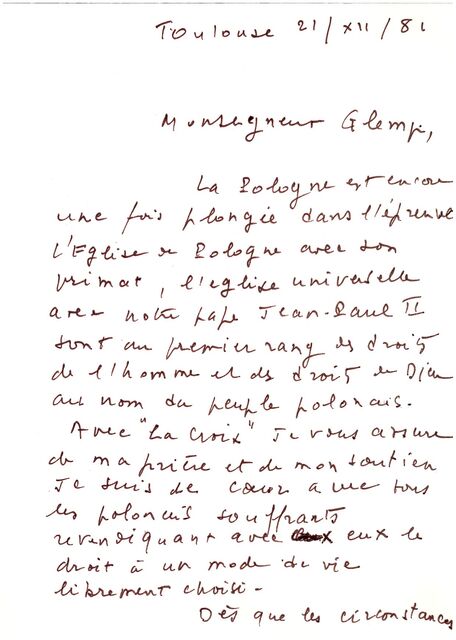 Toulouse 21/XII/81
Monseigneur Glemp,
La Pologne est encore
une fois plongée dans l'épreuve
L'Eglise de Pologne avec son
primat, l'eglise universelle
avec notre pape Jean-Paul II
sont au premier rang des droits
de l'homme et des droits de Dieu
au nom du peuple polonais.
Avec "La Croix" Je vous assure
de ma prière et de mon soutien
Je suis de cœur avec tous
les polonais souffrants
revendiquant avec eux le
droit à un mode de vie
librement choisi -
Dès que les circonstances